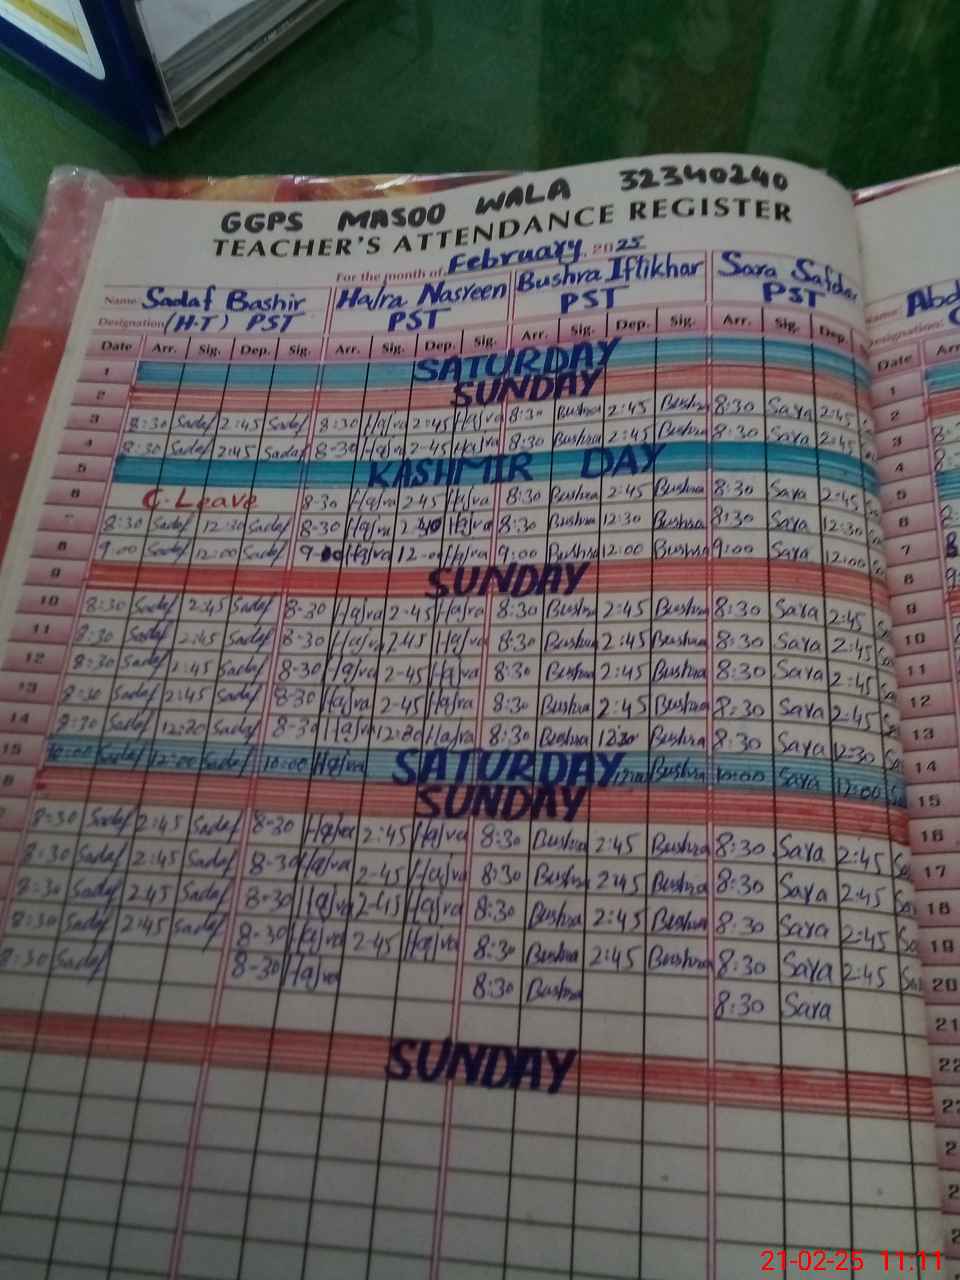 GGPS MASOO WALA 32340240
TEACHER'S ATTENDANCE REGISTER
For the month of February 2025
Name Sadaf Bashir Hajra Nasreen Bushra Iftikhar Sara Safdar
Designation (H-T) PST PST PST PST
Date Arr. Sig. Dep. Sig. Arr. Sig. Dep. Sig. Arr. Sig. Dep. Sig. Arr. Sig. Dep.
1 SATURDAY
2 SUNDAY
3 8:30 Sadaf 2:45 Sadaf 8:30 Hajra 2:45 Hajra 8:30 Bushra 2:45 Bushra 8:30 Sara 2:45
4 8:30 Sadaf 2:45 Sadaf 8-30 Hajra 2-45 Hajra 8:30 Bushra 2:45 Bushra 8:30 Sara 2:45
5 KASHMIR DAY
6 C-Leave 8-30 Hajra 2-45 Hajra 8:30 Bushra 2:45 Bushra 8:30 Sara 2:45
8:30 Sadaf 12:30 Sadaf 8-30 Hajra Hajra 8:30 Bushra 12:30 Bushra 8:30 Sara 12:30
8 9:00 Sadaf 12:00 Sadaf 9-00 Hajra 12-00 Hajra 9:00 Bushra 12:00 Bushra 9:00 Sara 12:00
9 SUNDAY
10 8:30 Sadaf 2:45 Sadaf 8-30 Hajra 2-45 Hajra 8:30 Bushra 2:45 Bushra 8:30 Sara 2:45
11 8:30 Sadaf 2:45 Sadaf 8-30 Hajra 2-45 Hajra 8:30 Bushra 2:45 Bushra 8:30 Sara 2:45
12 8:30 Sadaf 2:45 Sadaf 8-30 Hajra 2-45 Hajra 8:30 Bushra 2:45 Bushra 8:30 Sara 2:45
13 8:30 Sadaf 2:45 Sadaf 8-30 Hajra 2-45 Hajra 8:30 Bushra 2:45 Bushra 8:30 Sara 2:45
14 8:30 Sadaf 12:30 Sadaf 8-30 Hajra 12:30 Hajra 8:30 Bushra 12:30 Bushra 8:30 Sara 12:30
15 10:00 Sadaf 12:00 Sadaf 10:00 Hajra SATURDAY 12:00 Bushra 10:00 Sara 12:00
SUNDAY
8:30 Sadaf 2:45 Sadaf 8-30 Hajra 2:45 Hajra 8:30 Bushra 2:45 Bushra 8:30 Sara 2:45
8:30 Sadaf 2:45 Sadaf 8-30 Hajra 2-45 Hajra 8:30 Bushra 2:45 Bushra 8:30 Sara 2:45
8:30 Sadaf 2:45 Sadaf 8-30 Hajra 2-45 Hajra 8:30 Bushra 2:45 Bushra 8:30 Sara 2:45
8:30 Sadaf 2:45 Sadaf 8-30 Hajra 2-45 Hajra 8:30 Bushra 2:45 Bushra 8:30 Sara 2:45
8:30 Sadaf 8-30 Hajra 8:30 Bushra 8:30 Sara
SUNDAY
Name: Abd
Designation:
Date Arr
1
2
3
4
5
6
7
8
9
10
11
12
13
14
15
16
17
18
19
20
21
22
21-02-25 11:11